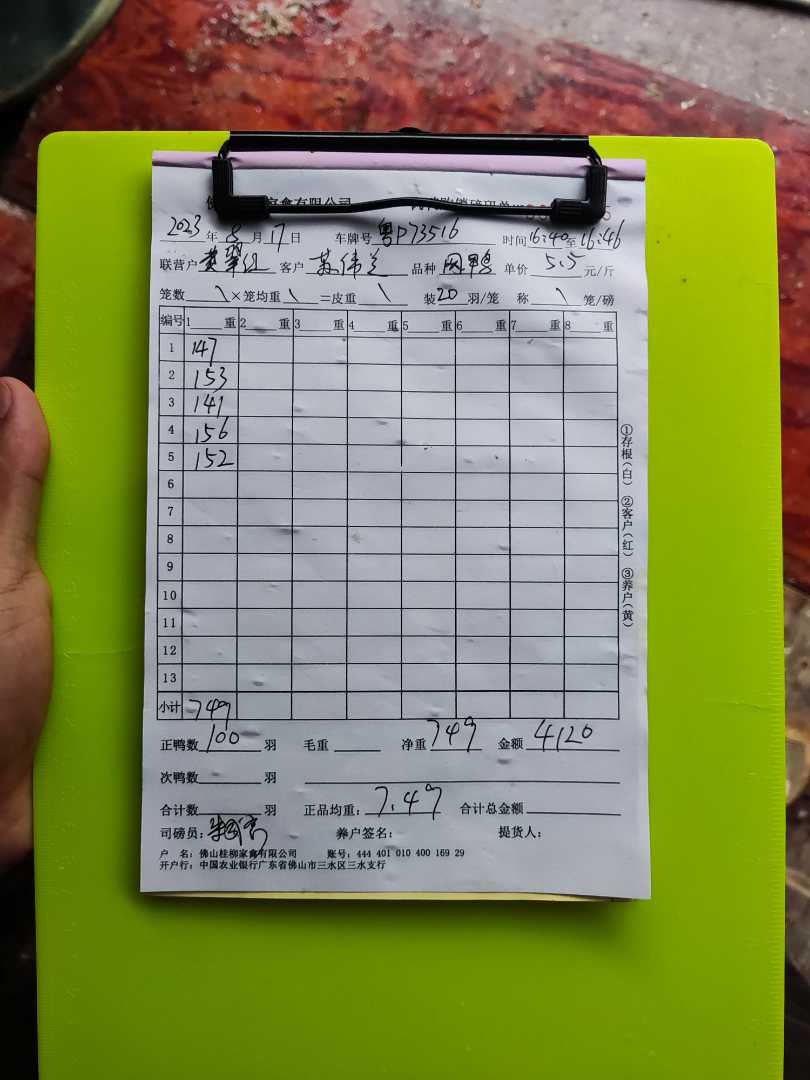 家禽有限公司
2023年8月17日 车牌号 粤P73516 时间16:40至16:46
联营户 客户 苏伟兰 品种 单价 5.5 元/斤
笼数 \ ×笼均重 \ =皮重 \ 装20羽/笼 称 \ 笼/磅
编号 1 重 2 重 3 重 4 重 5 重 6 重 7 重 8 重
1 147
2 153
3 141
4 156
5 152
6
7
8
9
10
11
12
13
小计 749
正鸭数 100 羽 毛重 净重 749 金额 4120
次鸭数 羽
合计数 羽 正品均重: 7.49 合计总金额
司磅员: 养户签名: 提货人:
户 名: 佛山桂柳家禽有限公司 账号: 444 401 010 400 169 29
开户行: 中国农业银行广东省佛山市三水区三水支行
①存根(白) ②客户(红) ③养户(黄)